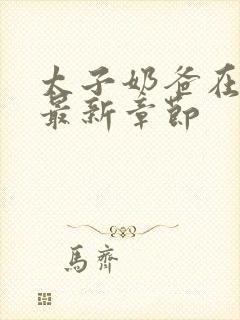 太子奶爸在
最新章节
馬齊